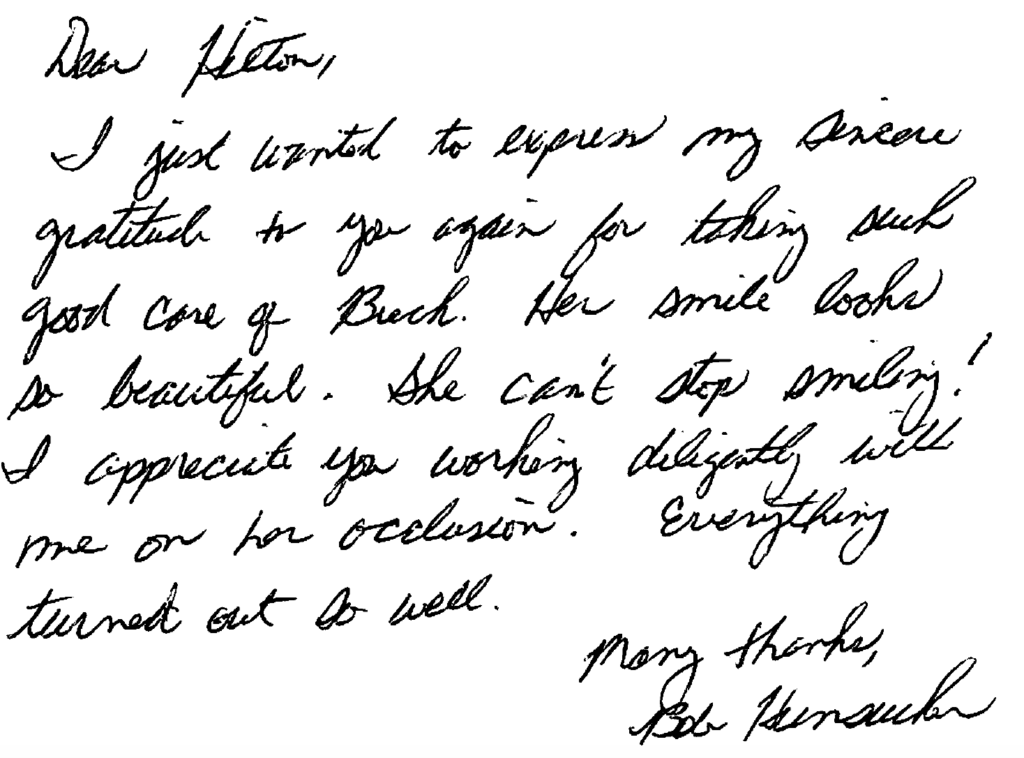 Dear Hilton,
I just wanted to express my sincere
gratitude to you again for taking such
good care of Her smile looks
so beautiful. She can't stop smiling!
I appreciate you working diligently with
me on her occlusion. Everything
turned out so well.
Many thanks,
Bob